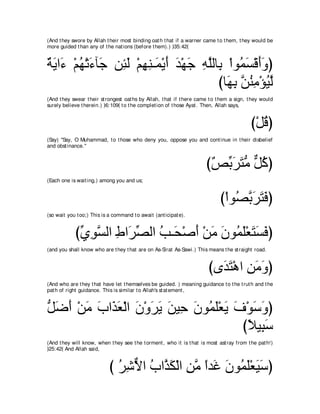 (And they swore by Allah their most binding oath that if a warner came to them, they would be
more guided than any of the nations (before them).) )35:42(
﴿وَأَقْسَمُواْ بِاللَّهِ جَهْدَ أَيْمَـنِهِمْ لَئِن جَآءَتْهُمْ ءَايَةٌ
لَّيُؤْمِنُنَّ بِهَا﴾
(And they swear their strongest oaths by Allah, that if there came to them a sign, they would
surely believe therein.) )6:109( to the completion of those Ayat. Then, Allah says,
﴿قُلْ﴾
(Say) "Say, O Muhammad, to those who deny you, oppose you and continue in their disbelief
and obstinance."
﴿كُلٌّ مُّتَرَبِّصٌ﴾
(Each one is waiting,) among you and us;
﴿فَتَرَبَّصُواْ﴾
(so wait you too;) This is a command to await (anticipate).
﴿فَسَتَعْلَمُونَ مَنْ أَصْحَـبُ الصِّرَاطِ السَّوِيِّ﴾
(and you shall know who are they that are on As-Sirat As-Sawi.) This means the straight road.
﴿وَمَنِ اهْتَدَى﴾
(And who are they that have let themselves be guided. ) meaning guidance to the truth and the
path of right guidance. This is similar to Allah's statement,
﴿وَسَوْفَ يَعْلَمُونَ حِينَ يَرَوْنَ الْعَذَابَ مَنْ أَضَلُّ
سَبِيلاً﴾
(And they will know, when they see the torment, who it is that is most astray from the path!)
)25:42( And Allah said,
﴿سَيَعْلَمُونَ غَداً مَّنِ الْكَذَّابُ الاٌّشِرُ ﴾